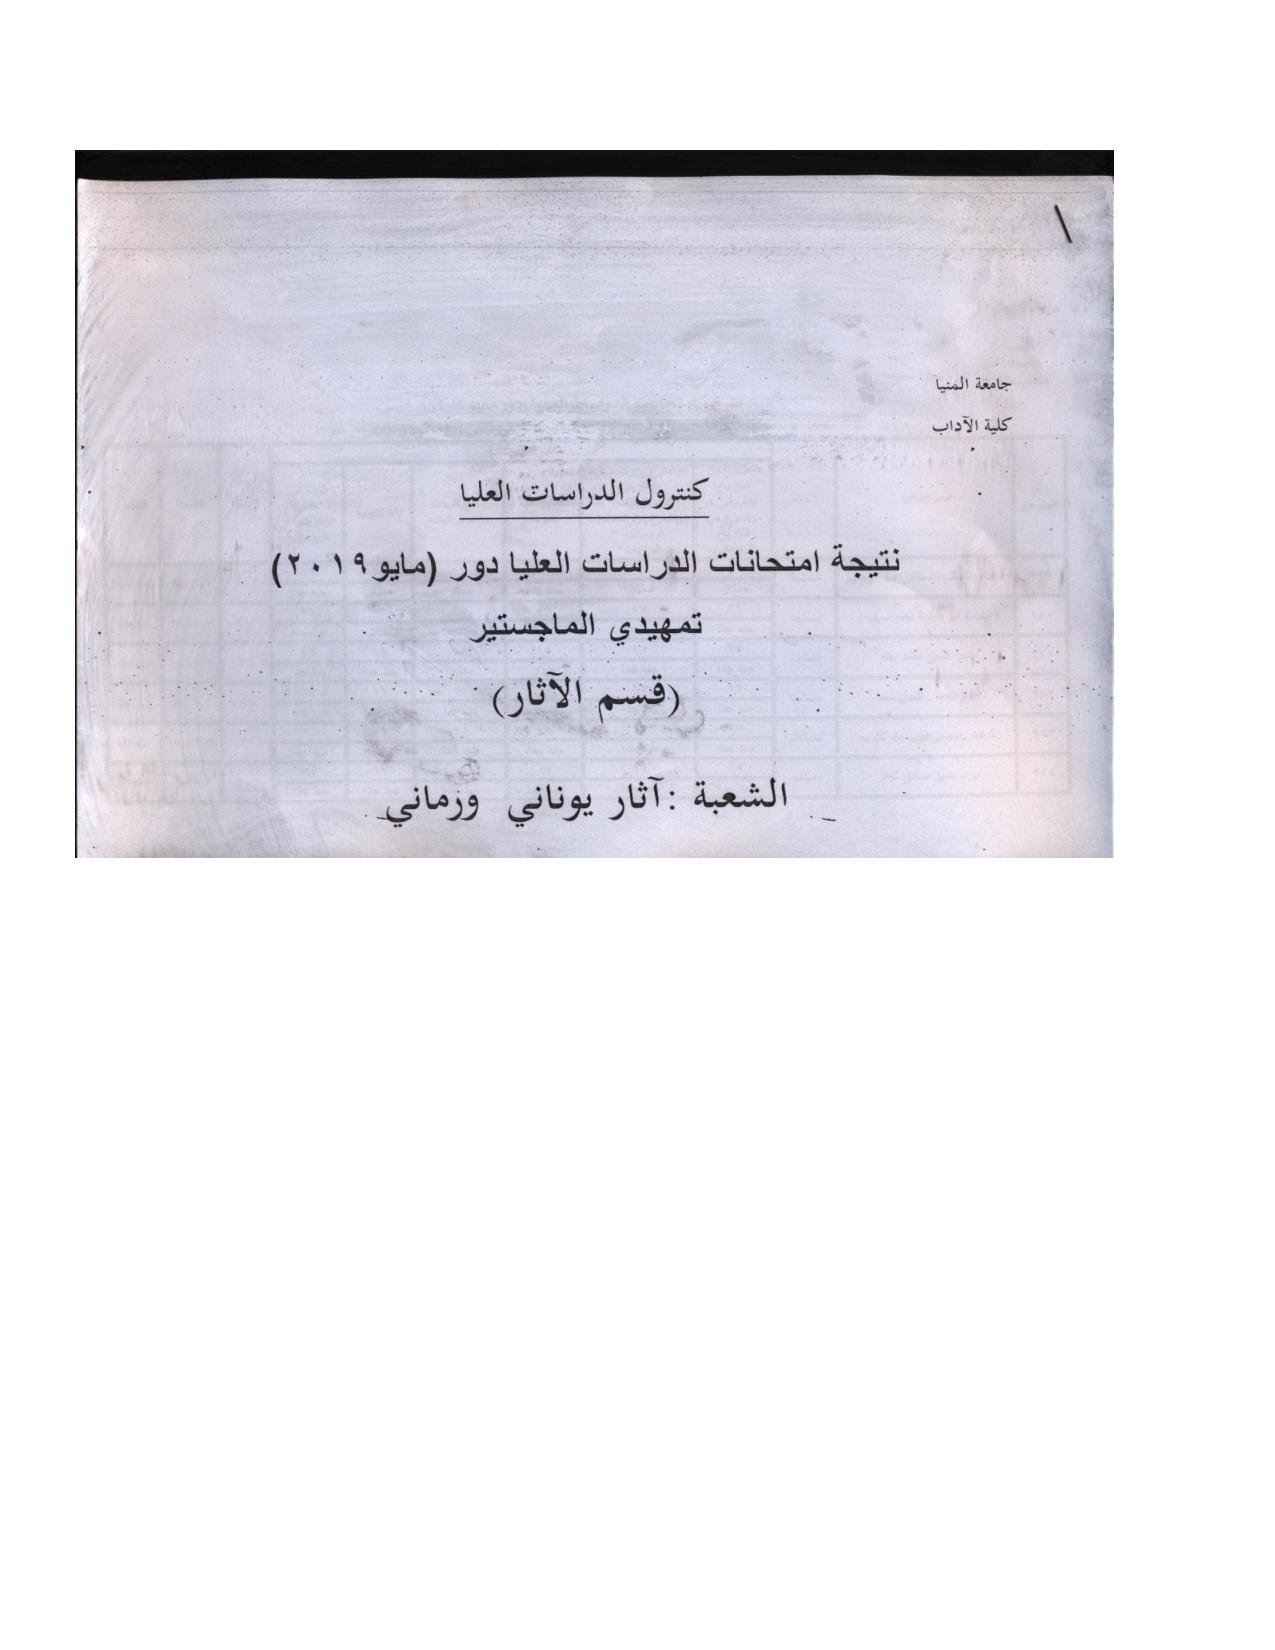 ١
جامعة المنيا
كلية الآداب
كنترول الدراسات العليا
نتيجة امتحانات الدراسات العليا دور (مايو ٢٠١٩)
تمهيدي الماجستير
(قسم الآثار)
الشعبة : آثار يوناني وزماني